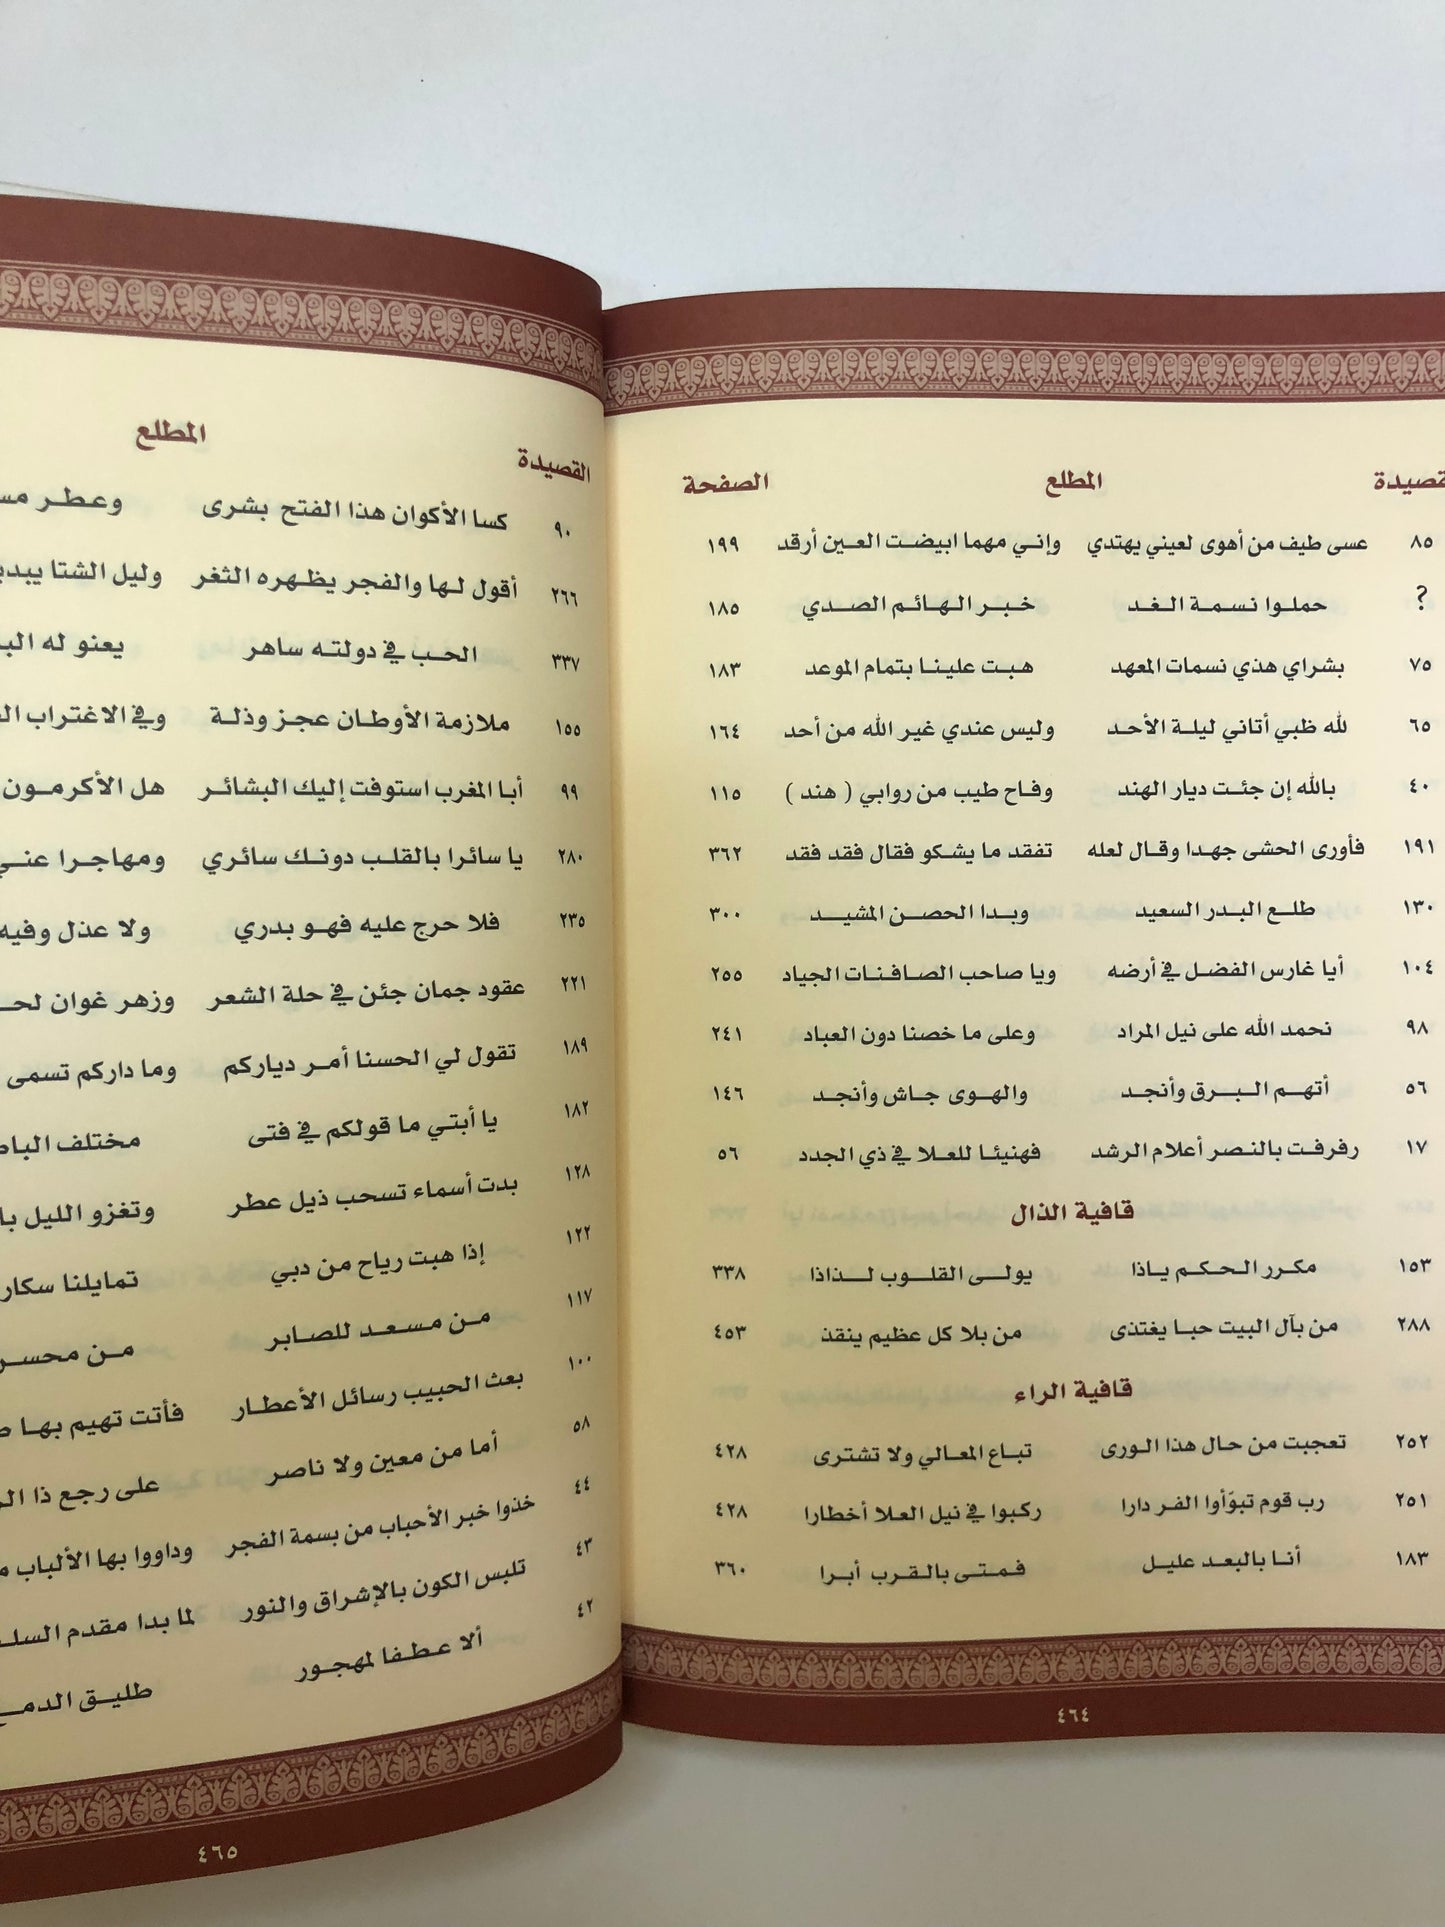 القصيدة المطلع الصفحة
٨٥ عسى طيف من أهوى لعيني يهتدي وإنـي مهما ابيضت العـين أرقد ١٩٩
? حملـوا نسمـة الغـد خبر الهائم الصدي ١٨٥
٧٥ بشراي هذي نسمات المعهد هبت علينا بتمام الموعد ١٨٣
٦٥ لله ظبي أتاني ليلـة الأحـد وليس عندي غير الله من أحد ١٦٤
٤٠ بالله إن جئت ديار الهند وفاح طيب من روابي ( هند ) ١١٥
١٩١ فأورى الحشى جهدا وقال لعله تفقد ما يشكو فقال فقد فقد ٣٦٢
١٣٠ طلع البدر السعيد وبدا الحصن المشيد ٣٠٠
١٠٤ أيا غارس الفضل في أرضه ويا صاحب الصافنات الجياد ٢٥٥
٩٨ نحمد الله على نيل المراد وعلى ما خصنا دون العباد ٢٤١
٥٦ أتهم البرق وأنجد والهوى جاش وأنجد ١٤٦
١٧ رفرفت بالنصر أعلام الرشد فهنيئا للعلا في ذي الجدد ٥٦
قافية الذال
١٥٣ مكرر الحكم ياذا يولى القلوب لذاذا ٣٣٨
٢٨٨ من بآل البيت حبا يغتذى من بلا كل عظيم ينقذ ٤٥٣
قافية الراء
٢٥٢ تعجبت من حال هذا الورى تباع المعالي ولا تشترى ٤٢٨
٢٥١ رب قوم تبوّأوا الفر دارا ركبوا في نيل العلا أخطارا ٤٢٨
١٨٣ أنا بالبعد عليل فمتى بالقرب أبرا ٣٦٠
٤٦٤
القصيدة المطلع
٩٠ كسا الأكوان هذا الفتح بشرى وعطر
٢٦٦ أقول لها والفجر يظهره الثغر وليل الشتا
٣٣٧ الحب في دولته ساهر يعنو له
١٥٥ ملازمة الأوطان عجز وذلة وفي الاغتراب
٩٩ أبا المغرب استوفت إليك البشائر هل الأكرمون
٢٨٠ يا سائرا بالقلب دونك سائري ومهاجرا
٢٣٥ فلا حرج عليه فهو بدري ولا عذل وفيه
٢٢١ عقود جمان جئن في حلة الشعر وزهر غوان
١٨٩ تقول لي الحسنا أمر دياركم وما داركم تسمى
١٨٢ يا أبتي ما قولكم في فتى مختلف
١٢٨ بدت أسماء تسحب ذيل عطر وتغزو الليل
١٢٢ إذا هبت رياح من دبي تمايلنا
١١٧ من مسعد للصابر من
١٠٠ بعث الحبيب رسائل الأعطار فأتت تهيم بها
٥٨ أما من معين ولا ناصر على رجع ذا
٤٤ خذوا خبر الأحباب من بسمة الفجر وداووا بها الألباب
٤٣ تلبس الكون بالإشراق والنور لما بدا مقدم
٤٢ ألا عطفا لمهجور طليق
٤٦٥